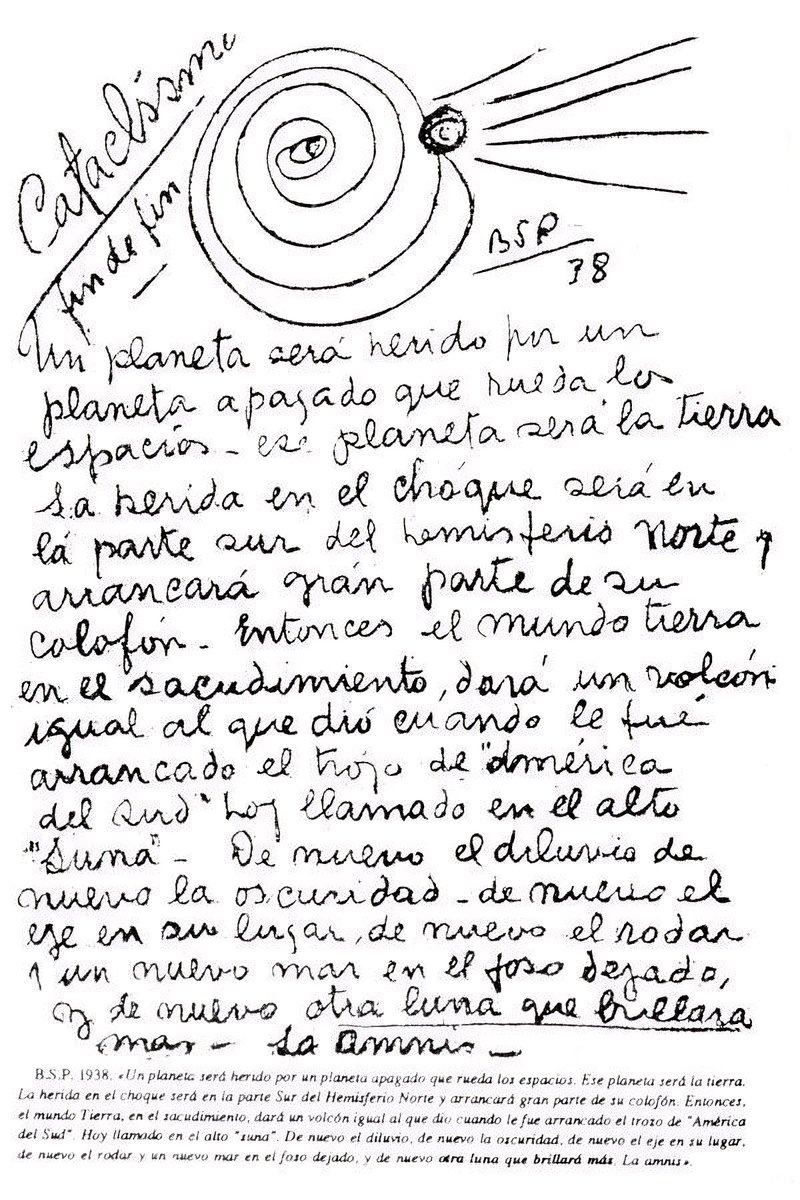 Cataclismo
fin de fin
BSP
38
Un planeta será herido por un
planeta apagado que rueda los
espacios - ese planeta será la tierra
La herida en el choque será en
la parte sur del hemisferio Norte y
arrancará grán parte de su
colofón - Entonces el mundo tierra
en el sacudimiento, dará un volcón
igual al que dió cuando le fué
arrancado el trozo de "américa
del Surd" hoy llamado en el alto
"Suna" - De nuevo el diluvio de
nuevo la oscuridad - de nuevo el
eje en su lugar, de nuevo el rodar
y un nuevo mar en el foso dejado,
y de nuevo otra luna que brillara
mas - La amnis -
B.S.P. 1938. «Un planeta será herido por un planeta apagado que rueda los espacios. Ese planeta será la tierra.
La herida en el choque será en la parte Sur del Hemisferio Norte y arrancará gran parte de su colofón. Entonces,
el mundo Tierra, en el sacudimiento, dará un volcón igual al que dio cuando le fue arrancado el trozo de "América
del Sud". Hoy llamado en el alto "suna". De nuevo el diluvio, de nuevo la oscuridad, de nuevo el eje en su lugar,
de nuevo el rodar y un nuevo mar en el foso dejado, y de nuevo otra luna que brillará más. La amnis».